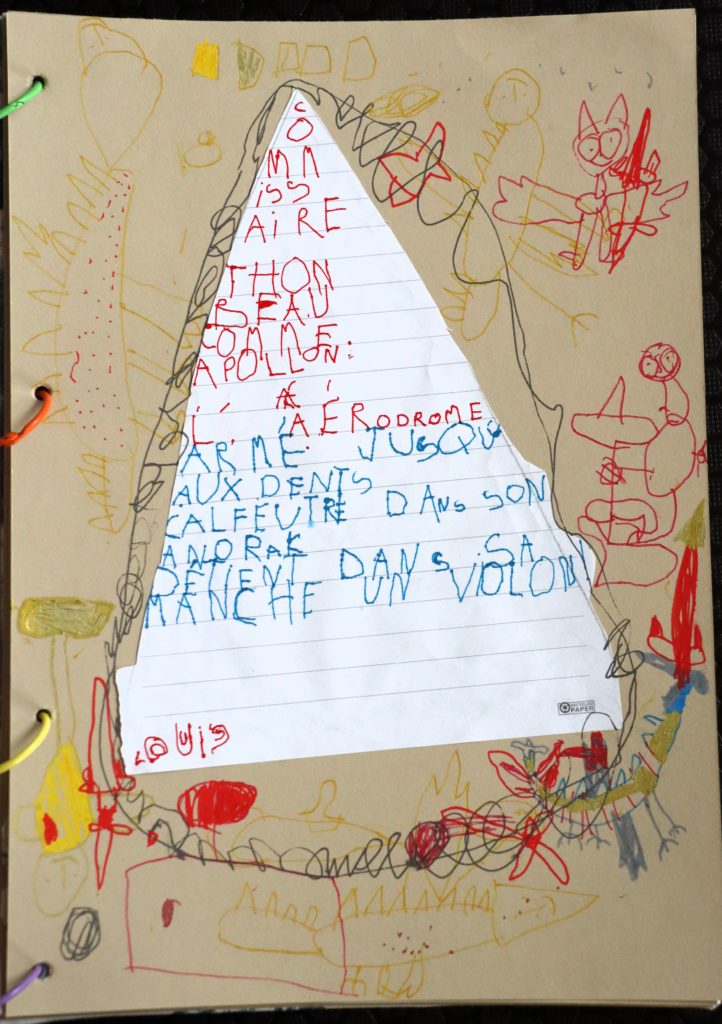 CO
MM
iss
AiRE
THON
BEAU
COMME
APOLLON:
À
L'AÉRODROME
ARMÉ JUSQU'
AUX DENTS
CALFEUTRÉ DANS SON
ANORAK
DÉTIENT DANS SA
MANCHE UN VIOLON!
LOUiS
RECYCLED
PAPER